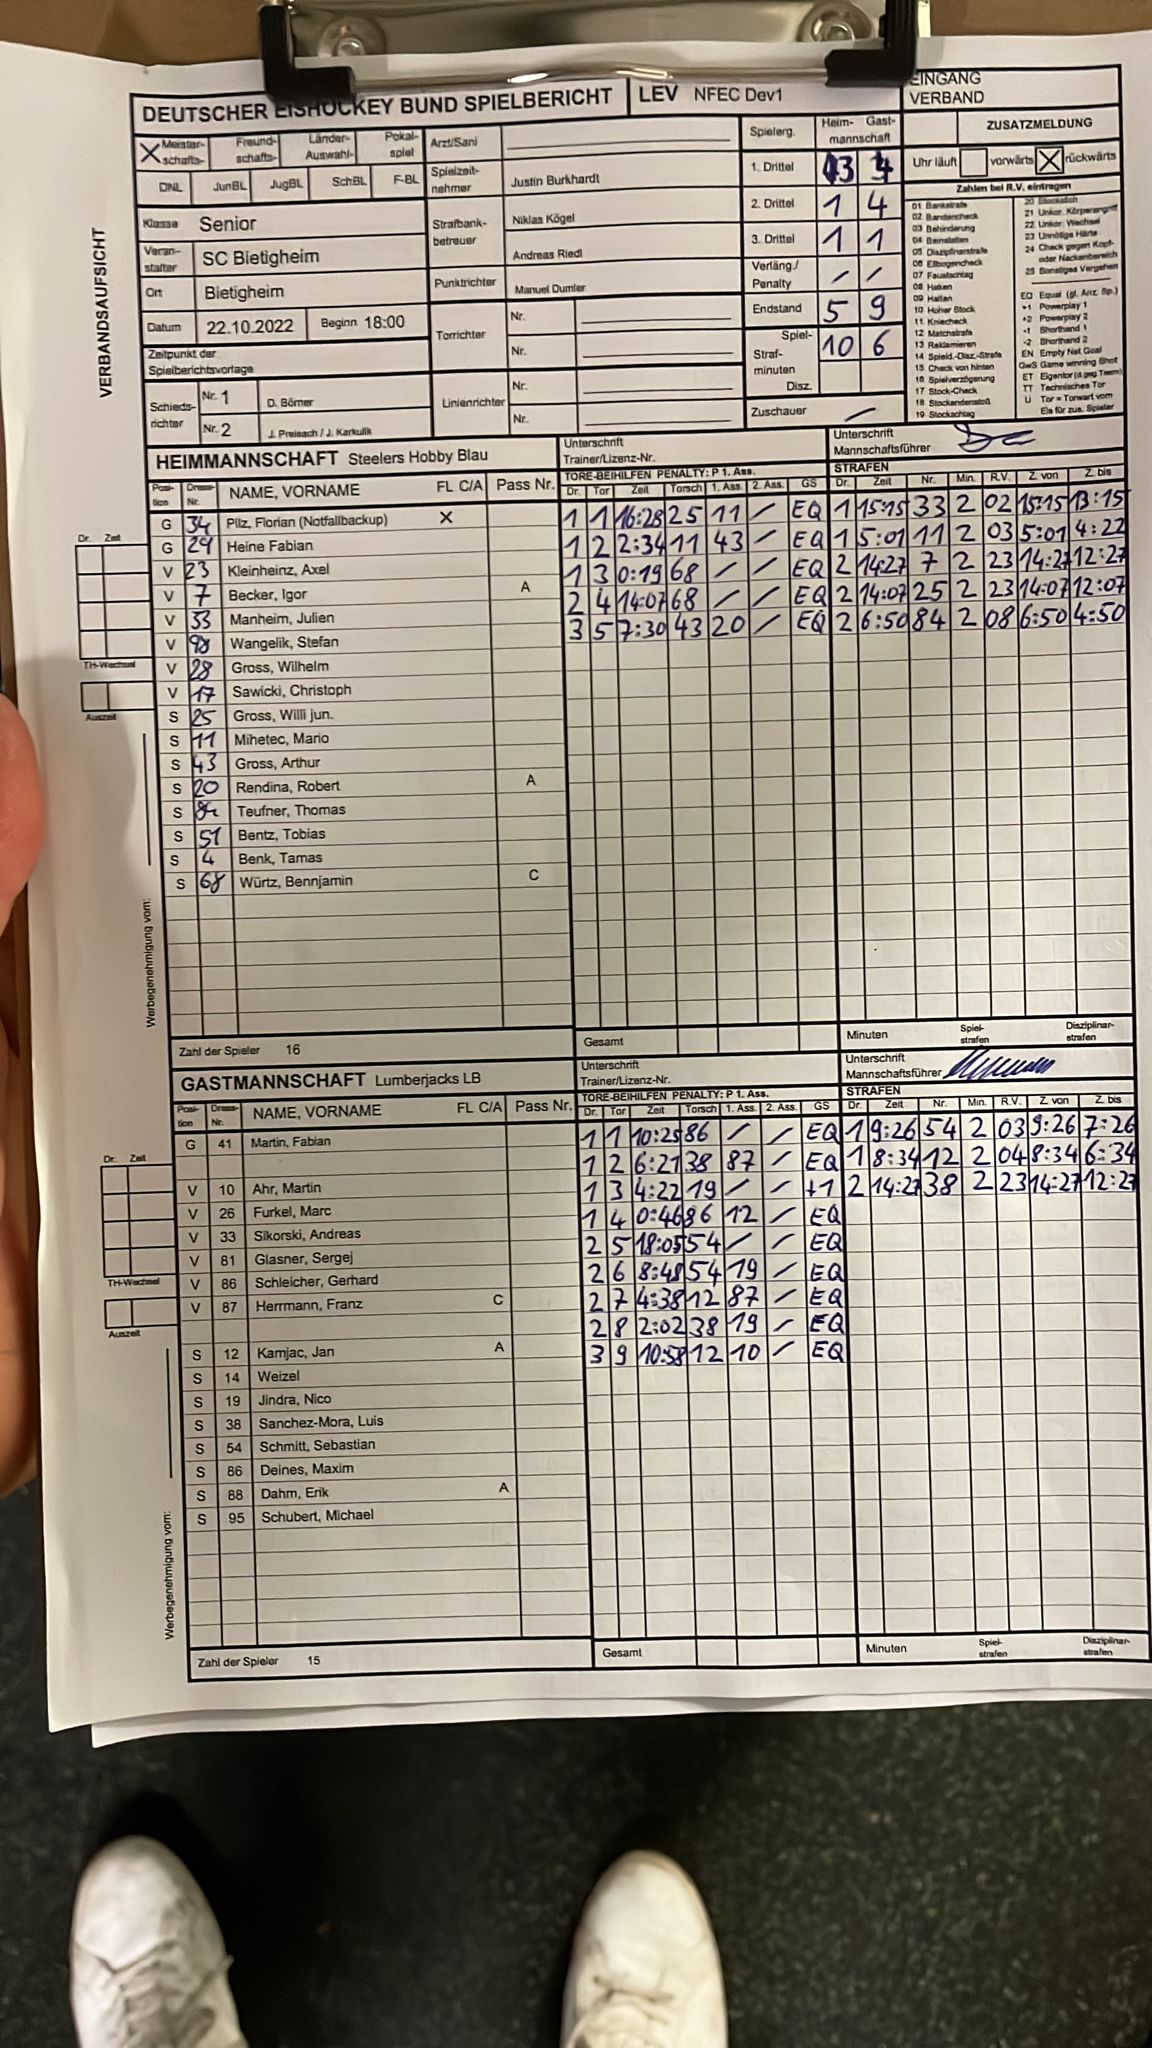 DEUTSCHER EISHOCKEY BUND SPIELBERICHT
LEV NFEC Dev1
EINGANG
VERBAND
Meister-schafts- Freund-schafts- Länder-Auswahl- Pokal-spiel
DNL JunBL JugBL SchBL F-BL
Klasse Senior
Veran-stalter SC Bietigheim
Ort Bietigheim
Datum 22.10.2022 Beginn 18:00
Zeitpunkt der
Spielberichtsvorlage
Schieds-richter Nr. 1 D. Börner
Nr. 2 J. Preisach / J. Karkulik
Arzt/Sani
Spielzeit-nehmer Justin Burkhardt
Strafbank-betreuer Niklas Kögel
Andreas Riedl
Punktrichter Manuel Dumler
Torrichter Nr.
Nr.
Linienrichter Nr.
Nr.
Spielerg. Heim- Gast-
mannschaft
1. Drittel 3
2. Drittel 1 4
3. Drittel 1 1
Verläng./
Penalty / /
Endstand 5 9
Spiel- 10 6
Straf-
minuten
Disz.
Zuschauer /
ZUSATZMELDUNG
Uhr läuft vorwärts X rückwärts
Zahlen bei R.V. eintragen
01 Bankstrafe
02 Bandencheck
03 Behinderung
04 Beinstellen
05 Disziplinarstrafe
06 Ellbogencheck
07 Faustschlag
08 Haken
09 Halten
10 Hoher Stock
11 Kniecheck
12 Matchstrafe
13 Reklamieren
14 Spield.-Disz.-Strafe
15 Check von hinten
16 Spielverzögerung
17 Stock-Check
18 Stockendenstoß
19 Stockschlag
20 Stockstich
21 Unkor. Körperangriff
22 Unkor. Wechsel
23 Unnötige Härte
24 Check gegen Kopf-
oder Nackenbereich
25 Sonstiges Vergehen
EQ Equal (gl. Anz. Sp.)
+1 Powerplay 1
+2 Powerplay 2
-1 Shorthand 1
-2 Shorthand 2
EN Empty Net Goal
GwS Game winning Shot
ET Eigentor (d.geg.Team)
TT Technisches Tor
U Tor = Torwart vom
Eis für zus. Spieler
VERBANDSAUFSICHT
HEIMMANNSCHAFT Steelers Hobby Blau
Unterschrift
Trainer/Lizenz-Nr.
Unterschrift
Mannschaftsführer
Posi-tion Dress-Nr. NAME, VORNAME FL C/A Pass Nr.
TORE-BEIHILFEN PENALTY: P 1. Ass.
Dr. Tor Zeit Torsch 1. Ass. 2. Ass. GS
STRAFEN
Dr. Zeit Nr. Min. R.V. Z. von Z. bis
G 34 Pilz, Florian (Notfallbackup) X
G 29 Heine Fabian
V 23 Kleinheinz, Axel
V 7 Becker, Igor A
V 33 Manheim, Julien
V 98 Wangelik, Stefan
V 28 Gross, Wilhelm
V 17 Sawicki, Christoph
S 25 Gross, Willi jun.
S 11 Mihetec, Mario
S 43 Gross, Arthur
S 20 Rendina, Robert A
S 84 Teufner, Thomas
S 51 Bentz, Tobias
S 4 Benk, Tamas
S 68 Würtz, Bennjamin C
1 1 16:28 25 11 / EQ
1 2 2:34 11 43 / EQ
1 3 0:19 68 / / EQ
2 4 14:07 68 / / EQ
3 5 7:30 43 20 / EQ
1 15:15 33 2 02 15:15 13:15
1 5:01 11 2 03 5:01 4:22
2 14:27 7 2 23 14:27 12:27
2 14:07 25 2 23 14:07 12:07
2 6:50 84 2 08 6:50 4:50
Dr. Zeit
TH-Wechsel
Auszeit
Werbegenehmigung vom:
Zahl der Spieler 16
Gesamt
Minuten Spiel-strafen Disziplinar-strafen
GASTMANNSCHAFT Lumberjacks LB
Unterschrift
Trainer/Lizenz-Nr.
Unterschrift
Mannschaftsführer
Posi-tion Dress-Nr. NAME, VORNAME FL C/A Pass Nr.
TORE-BEIHILFEN PENALTY: P 1. Ass.
Dr. Tor Zeit Torsch 1. Ass. 2. Ass. GS
STRAFEN
Dr. Zeit Nr. Min. R.V. Z. von Z. bis
G 41 Martin, Fabian
V 10 Ahr, Martin
V 26 Furkel, Marc
V 33 Sikorski, Andreas
V 81 Glasner, Sergej
V 86 Schleicher, Gerhard
V 87 Herrmann, Franz C
S 12 Kamjac, Jan A
S 14 Weizel
S 19 Jindra, Nico
S 38 Sanchez-Mora, Luis
S 54 Schmitt, Sebastian
S 86 Deines, Maxim
S 88 Dahm, Erik A
S 95 Schubert, Michael
1 1 10:25 86 / / EQ
1 2 6:21 38 87 / EQ
1 3 4:22 19 / / +1
1 4 0:46 86 12 / EQ
2 5 18:05 54 / / EQ
2 6 8:48 54 19 / EQ
2 7 4:38 12 87 / EQ
2 8 2:02 38 19 / EQ
3 9 10:58 12 10 / EQ
1 9:26 54 2 03 9:26 7:26
1 8:34 12 2 04 8:34 6:34
2 14:27 38 2 23 14:27 12:27
Dr. Zeit
TH-Wechsel
Auszeit
Werbegenehmigung vom:
Zahl der Spieler 15
Gesamt
Minuten Spiel-strafen Disziplinar-strafen